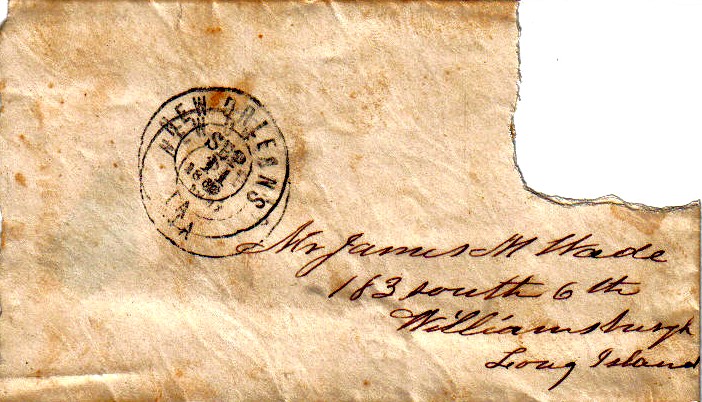 NEW ORLEANS
SEP
11
LA
Mr James M Wade
183 south 6 th
Williamsburgh
Long Island